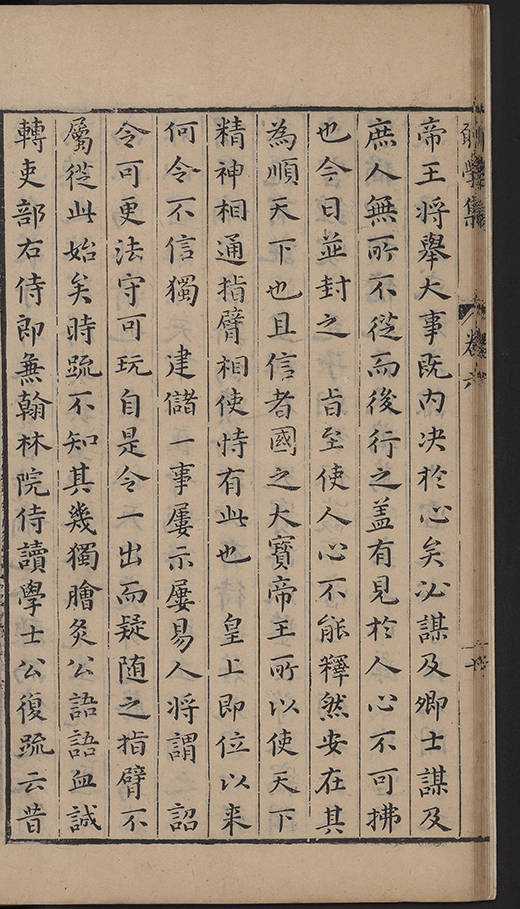 帝王将舉大事既内决於心矣必謀及卿士謀及
庶人無所不從而後行之盖有見於人心不可拂
也今日並封之 旨至使人心不能釋然安在其
為順天下也且信者國之大寳帝王所以使天下
精神相通指臂相使恃有此也 皇上即位以来
何令不信獨 建儲一事屢示屢易人将謂 詔
令可更法守可玩自是令一出而疑随之指臂不
屬從此始矣時䟽不知其幾獨膾炙公語語血誠
轉吏部右侍郎兼翰林院侍讀學士公復䟽云昔